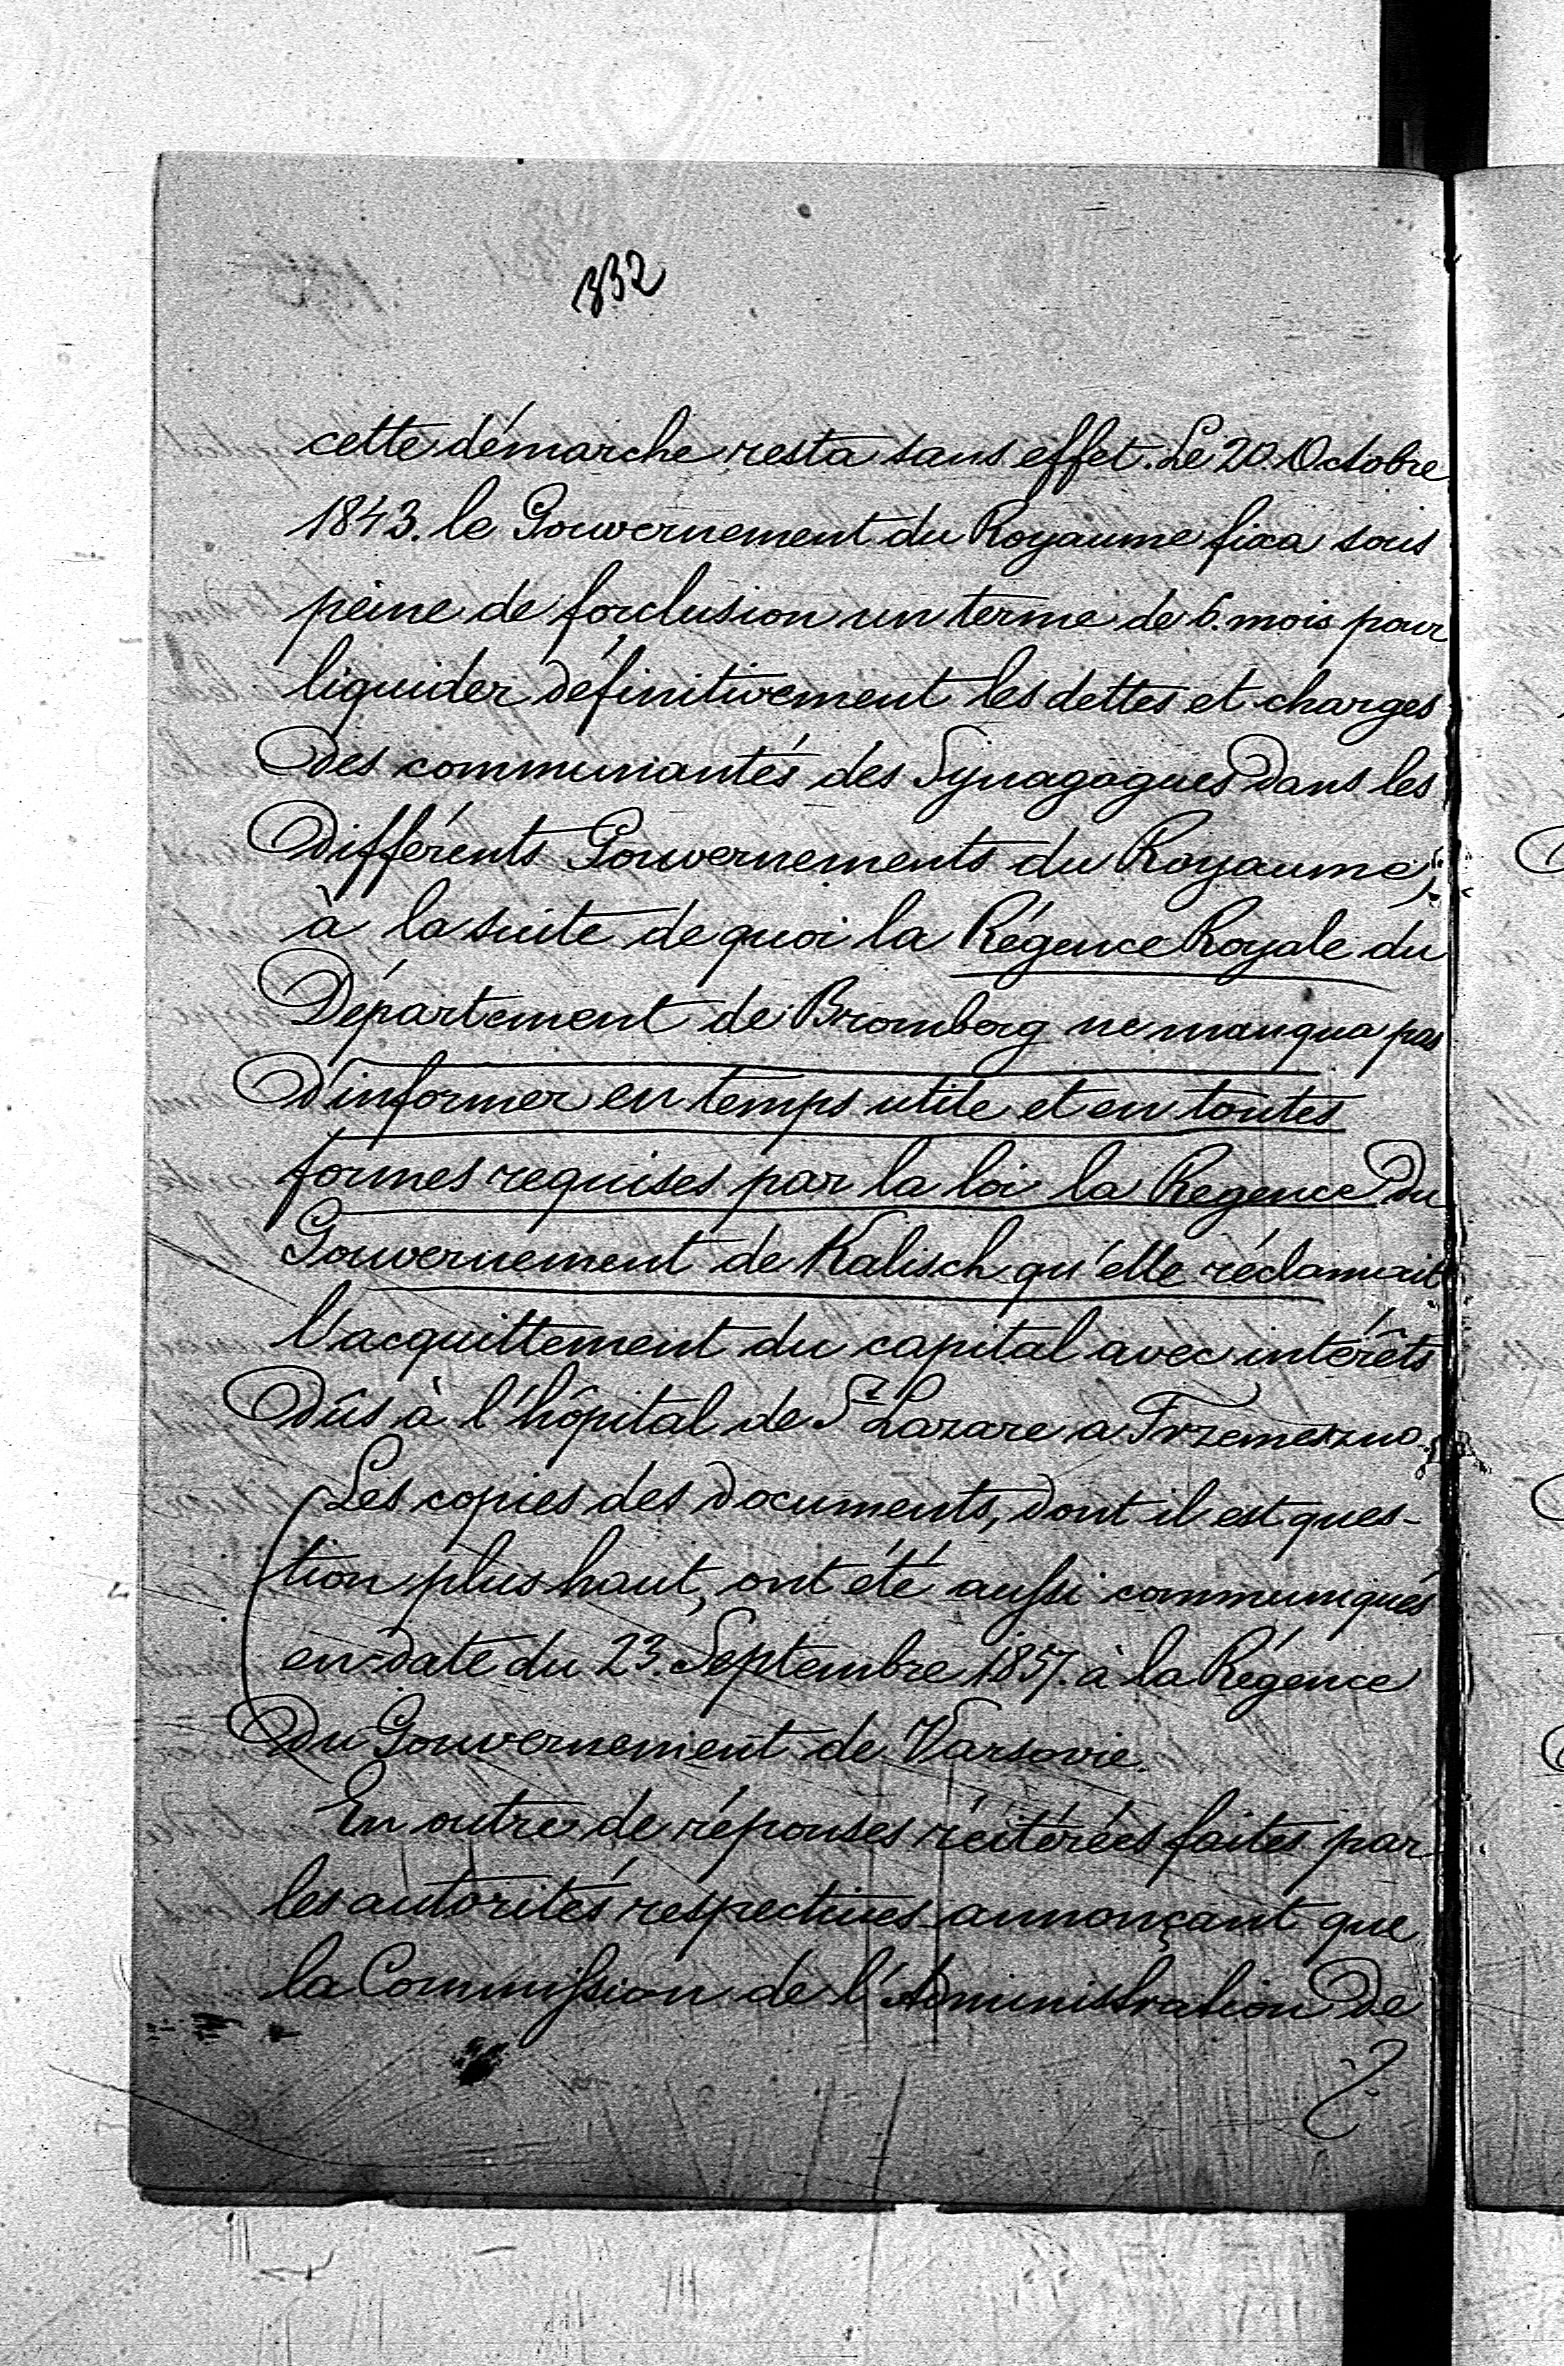 332
cette démarche resta sans effet. Le 20. Octobre
1843. le Gouvernement du Royaume fixa sous
peine de forclusion un terme de 6. mois pour
liquider définitivement les dettes et charges
des communautés des Synagogues dans les
différents Gouvernements du Royaume,
à la suite de quoi la Régence Royale du
Département de Bromberg ne manqua pas
d'informer en temps utile et en toutes
formes requises par la loi la Regence du
Gouvernement de Kalisch qu'elle réclamait
l'acquittement du capital avec intérêts
dûs à l'hôpital de St Lazare a Trzemeszno.
Les copies des documents, dont il est ques-
tion plus haut, ont été aussi communiqués
en date du 23. Septembre 1857. à la Régence
du Gouvernement de Varsovie.
En outre de réponses réitérées faites par
les autorités respectives annonçant que
la Commission de l'Administration de